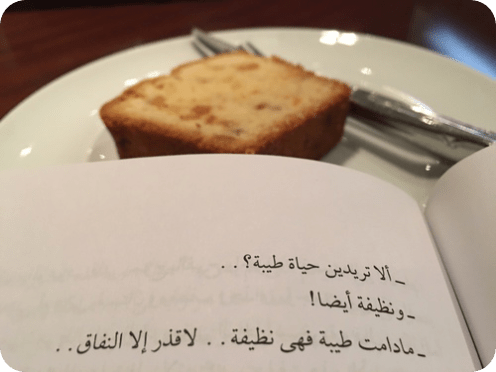 ـ ألا تريدين حياة طيبة؟ . .
ـ ونظيفة أيضا !
ـ مادامت طيبة فهى نظيفة . . لاقذر إلا النفاق . .